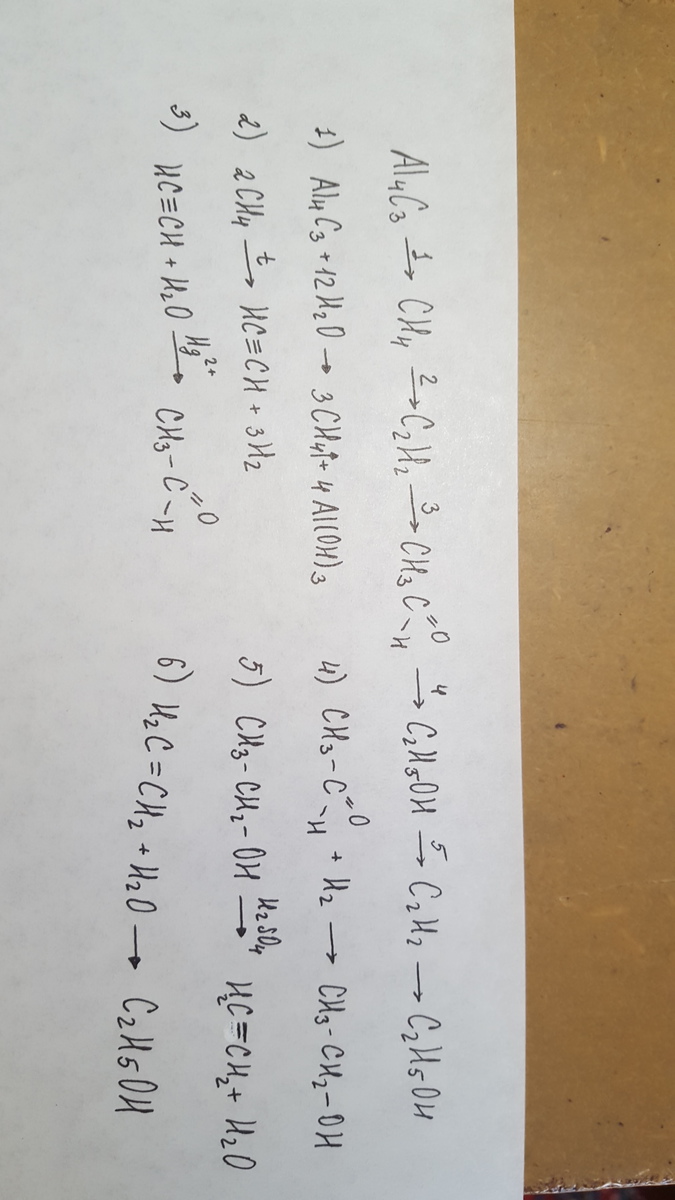 Al₄C₃ —1→ CH₄ —2→ C₂H₂ —3→ CH₃C(=O)–H —4→ C₂H₅OH —5→ C₂H₂ → C₂H₅OH
1) Al₄C₃ + 12H₂O → 3CH₄↑ + 4Al(OH)₃
2) 2CH₄ —t→ HC≡CH + 3H₂
3) HC≡CH + H₂O —Hg²⁺→ CH₃–C(=O)–H
4) CH₃–C(=O)–H + H₂ → CH₃–CH₂–OH
5) CH₃–CH₂–OH —H₂SO₄→ H₂C≡CH₂ + H₂O
6) H₂C=CH₂ + H₂O → C₂H₅OH